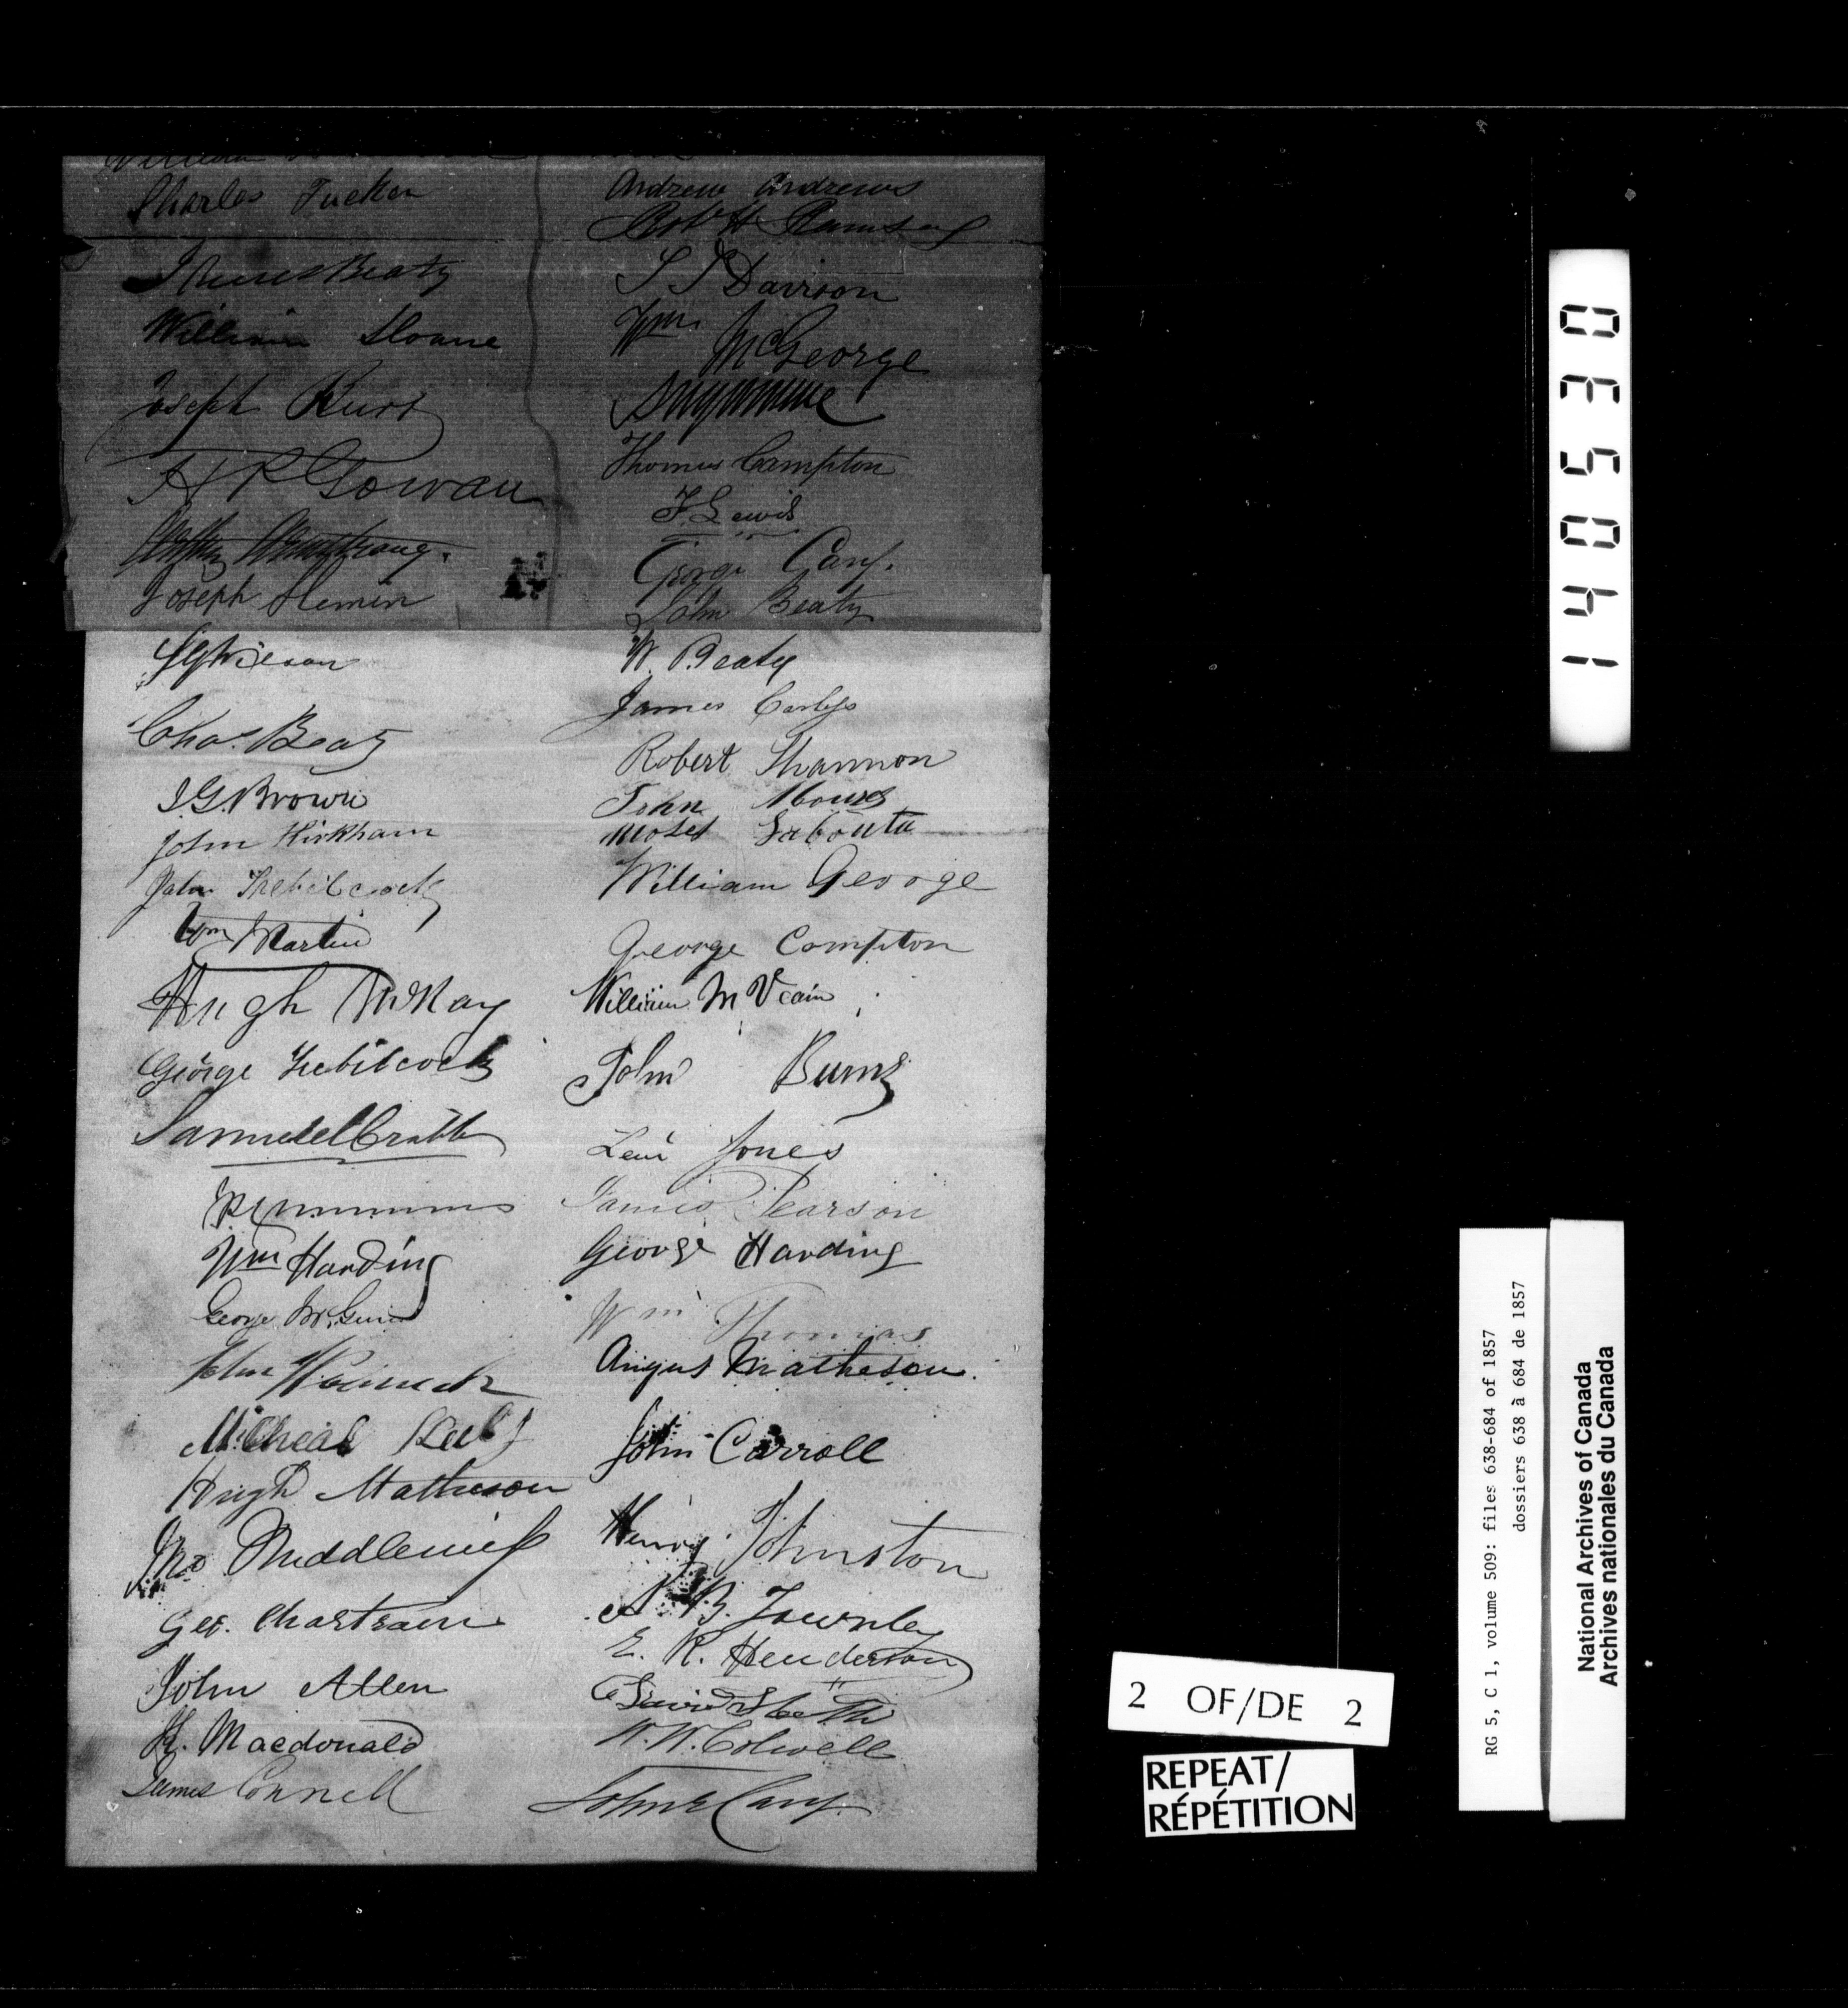 William
Charles Tucker
James Beaty
William Sloane
Joseph Burr
H R Gowan
Armstrong.
Joseph Slemin
Wilson
Chas. Beaty
J.G. Brown
John Kirkham
John Trebilcock
Wm Martin
Hugh McKay
George Trebilcock
Samuel Crabb
Wm Harding
George McGinn
John
Micheal
Hugh Matheson
Jno Middlemiss
Geo. Chartrain
John Allen
K. Macdonald
James Connell
Andrew Andrews
Robt H Ramsay
S S Davison
Wm McGeorge
Thomas Campton
F. Lewis
George Cary.
John Beaty
W. Beaty
James
Robert Shannon
John
Moses
William George
George Compton
William McVean
John Burns
Levi Jones
James Pearson
George Harding
Wm Thomas
Angus Matheson.
John Carroll
Henry Johnston
B. Townley
E. R. Henderson
David
W.W. Colwell
John E Cary.
140530
2 OF/DE 2
REPEAT/
RÉPÉTITION
RG 5, C 1, volume 509: files 638-684 of 1857
dossiers 638 à 684 de 1857
National Archives of Canada
Archives nationales du Canada